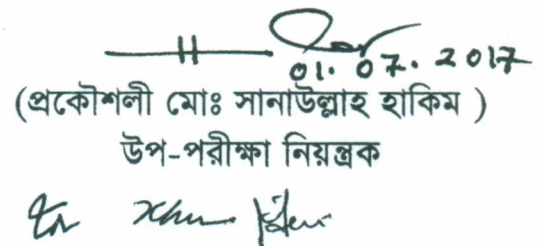 01.07.2017
(প্রকৌশলী মোঃ সানাউল্লাহ হাকিম )
উপ-পরীক্ষা নিয়ন্ত্রক